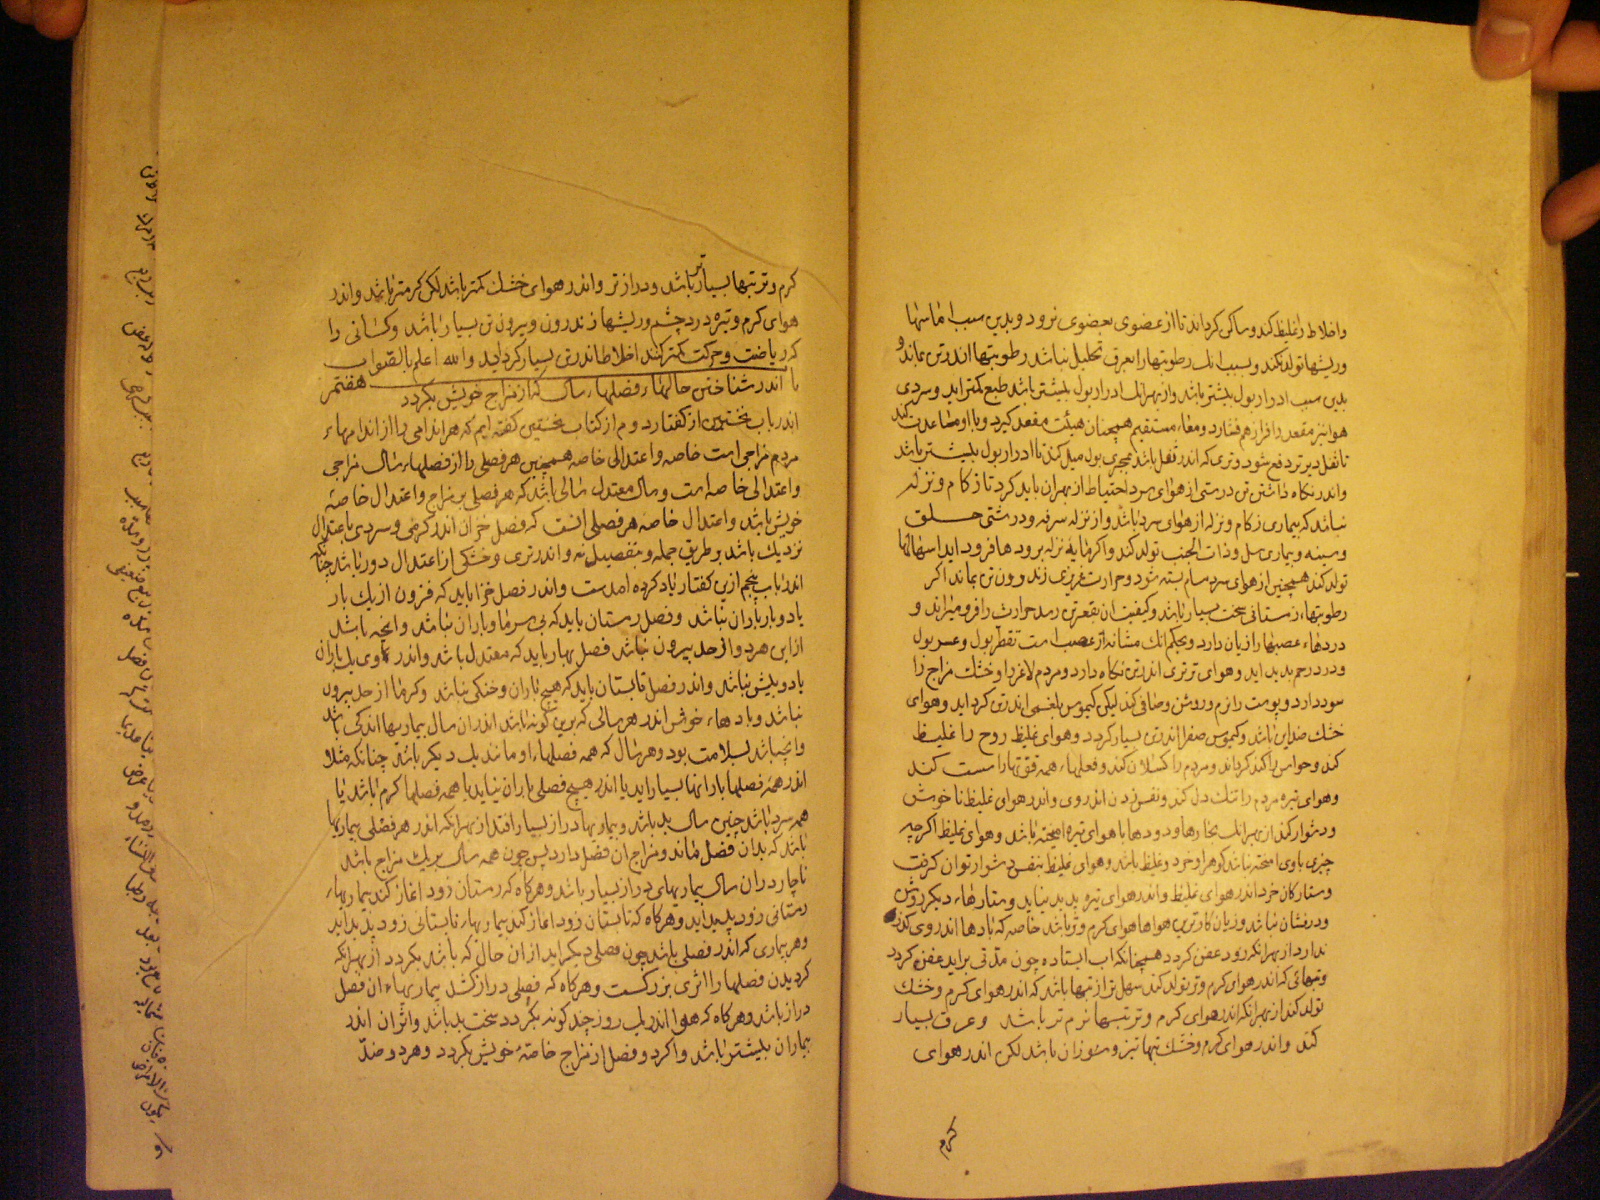 واخلاط را غلیظ کند و ساکن گرداند تا از عضوی بعضوی نرود و بدین سبب اماسها
و ریشها تولد نکند و بسبب انک رطوبتها را بعرق تحلیل نباشد رطوبتها اندر تن بماند و
بدین سبب ادرار بول بیشتر باشد و از بهر انک ادرار بول بیشتر باشد طبع کمتر اید و سردی
هوا نیز مقعد را فراز هم فشارد و معاء مستقیم همچنان هیئت مقعد گیرد و با او مساعدت کند
تا ثفل دیرتر دفع شود و تری که اندر ثفل باشد بمجری بول میل کند تا ادرار بول بیشتر باشد
و اندر نگاه داشتن تن درستی از هوای سرد احتیاط از بهر ان باید کرد تا زکام و نزله
نباشد که بیماری زکام و نزله از هوای سرد باشد و از نزله سرفه و درشتی حلق
و سینه و بیماری سل و ذات الجنب تولد کند و اگر مایه نزله برودها فرود اید اسهالها
تولد کند همچنین از هوای سرد مسام بسته شود و حرارت غریزی اندرون تن بماند اگر
رطوبتهاء زمستانی سخت بسیار باشد و کیفیت ان بقعر تن رسد حرارت را فرو میراند و
دردهاء عصبها را زیان دارد و بحکم انک مثانه از عصب است تقطیر بول و عسر بول
و درد رحم پدید اید و هوای تر تری اندر تن نگاه دارد و مردم لاغر را و خشک مزاج را
سود دارد و پوست را نرم و روشن و صافی کند لیکن کیموس بلغمی اندر تن گرد اید و هوای
خشک ضد این باشد و کیموس صفرا اندر تن بسیار گردد و هوای غلیظ روح را غلیظ
کند و حواس را کند گرداند و مردم را کسلان کند و فعلهاء همه قوتها را سست کند
و هوای تیره مردم را تنک دل کند و نفس زدن اندر وی و اندر هوای غلیظ ناخوش
و دشوار کند از بهر انک بخارها و دودها با هوای تیره امیخته باشد و هوای غلیظ اگر چه
چیزی با وی امیخته نباشد گوهر او خود غلیظ باشد و هوای غلیظ بنفس دشوار توان گرفت
و ستارگان خرد اندر هوای غلیظ و اندر هوای تیره پدید نیاید و ستارهاء دیگر روشن
و درفشان نباشد و زیان کارترین هواها هوای گرم و تر باشد خاصه که بادها اندر وی گذر
ندارد از بهر انکه زود عفن گردد همچنانکه اب ایستاده چون مدتی براید عفن گردد
و تبهائی که اندر هوای گرم و تر تولد کند سهل تر از تبها باشد که اندر هوای گرم و خشک
تولد کند از بهر انکه اندر هوای گرم و تر تبها نرم تر باشد و عرق بسیار
کند و اندر هوای گرم و خشک تبها تیز و سوزان باشد لکن اندر هوای
گرم
گرم و تر تبها بسیار تر باشد و دراز تر و اندر هوای خشک کمتر باشد لکن گرمتر باشد و اندر
هوای گرم و تیره درد چشم و ریشها از اندرون و بیرون تن بسیار باشد و کسانی را
که ریاضت و حرکت کمتر کنند اخلاط اندر تن بسیار گرد اید والله اعلم بالصواب
باب هفتم اندر شناختن حالهاء فصلهاء سال که از مزاج خویش بگردد
اندر باب نخستین از گفتار دوم از کتاب نخستین گفته ایم که هر اندامی را از اندامهاء
مردم مزاجی است خاصه و اعتدالی خاصه همچنین هر فصلی را از فصلهاء سال مزاجی
و اعتدالی خاصه است و سال معتدل سالی باشد که هر فصلی بر مزاج و اعتدال خاصه
خویش باشد و اعتدال خاصه هر فصلی انست که فصل خزان اندر گرمی و سردی باعتدال
نزدیک باشد بر طریق جمله و بتفصیل نه و اندر تری و خشکی از اعتدال دور باشد چنانکه
اندر باب پنجم ازین گفتار یاد کرده امدست و اندر فصل خزان باید که فزون از یک بار
یا دو بار باران نباشد و فصل زمستان باید که بی سرما و باران نباشد و انچه باشد
از این هر دو از حد بیرون نباشد فصل بهار باید که معتدل باشد و اندر وی یک باران
یا دو بیش نباشد و اندر فصل تابستان باید که هیچ باران و خنکی نباشد و گرما از حد بیرون
نباشد و بادهاء خوش اندر هر سالی که برین گونه باشد اندران سال بیماریها اندکی باشد
و انچه باشد بسلامت بود و هر سال که همه فصلهاء او مانند یک دیگر باشد چنانکه مثلا
اندر همه فصلها بارانها بسیار اید یا اندر هیچ فصلی باران نیاید یا همه فصلها گرم باشد یا
همه سرد باشد چنین سال بد باشد و بیماریها دراز بسیار افتد از بهر انکه اندر هر فصلی بیماریها
باشد که بدان فصل ماند و مزاج ان فصل دارد پس چون همه سال بر یک مزاج باشد
ناچار دران سال بیماریهای دراز بسیار باشد و هرگاه که زمستان زود اغاز کند بیماریهاء
زمستانی زود پدید اید و هرگاه که تابستان زود اغاز کند بیماریهاء تابستانی زود پدید اید
و هر بیماری که اندر فصلی باشد چون فصلی دیگر اید از ان حال که باشد بگردد از بهر انکه
گردیدن فصلها را اثری بزرگست و هرگاه که فصلی دراز گشت بیماریهاء ان فصل
دراز باشد و هرگاه که هوا اندر یک روز چند گونه بگردد سخت بد باشد و اثر ان اندر
بیماران بیشتر باشد و اگر دو فصل از مزاج خاصه خویش بگردد و هر دو ضد